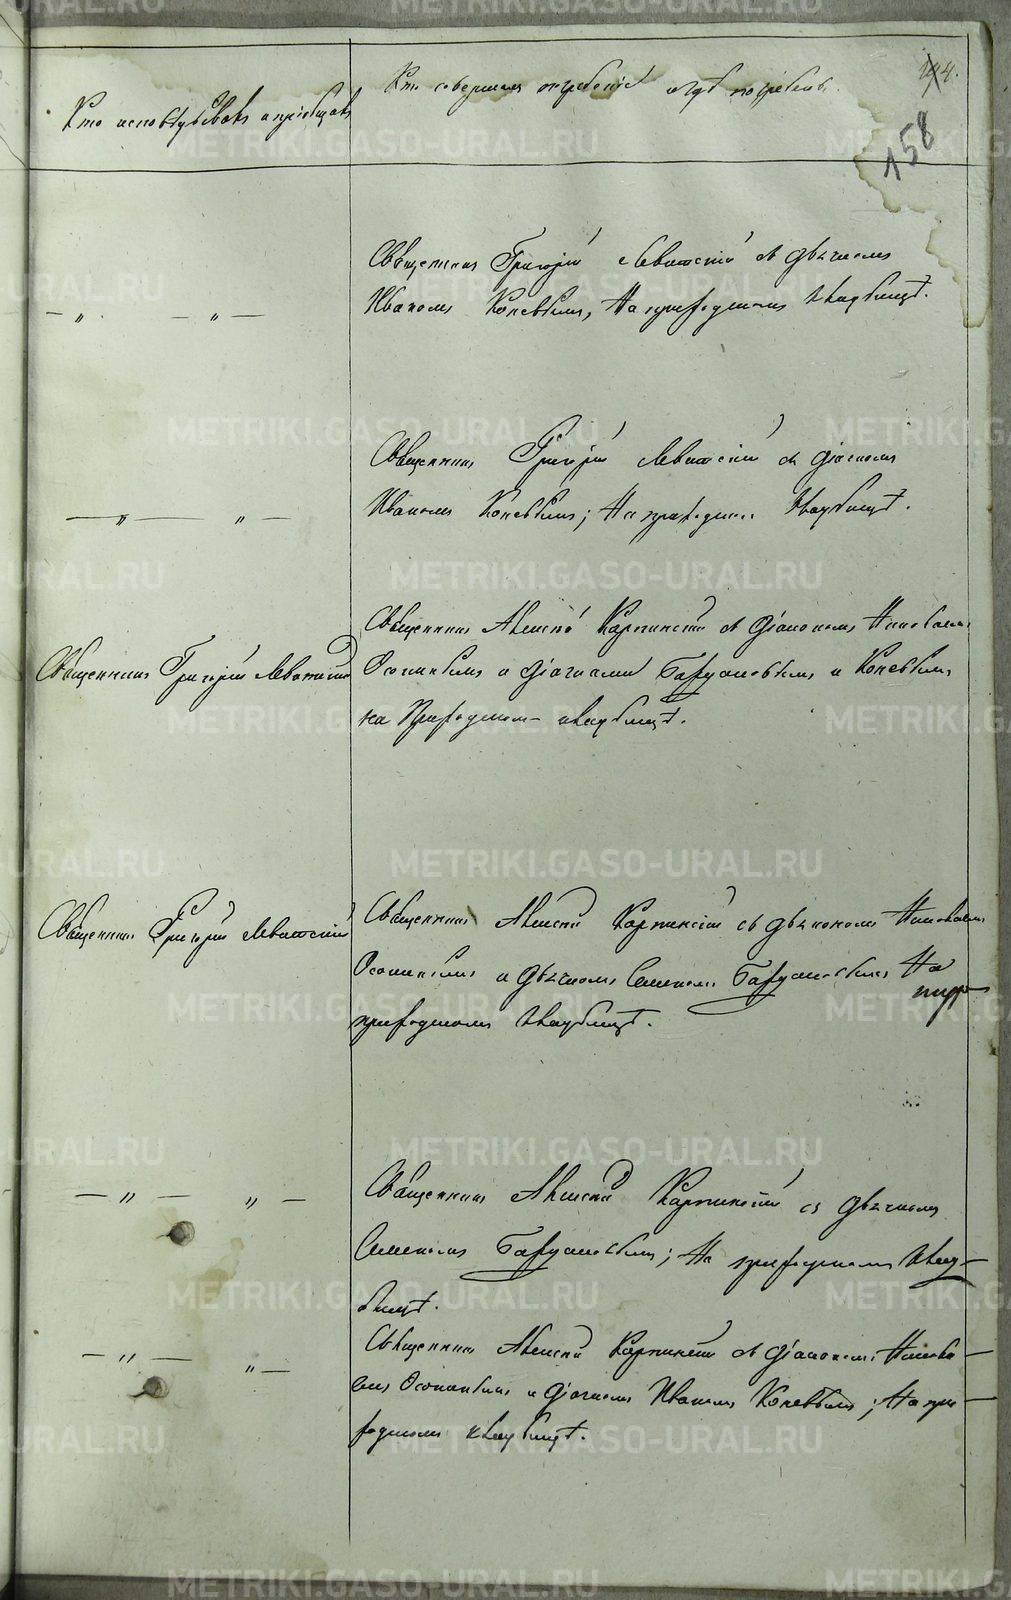 144.
158
Кто исповѣдывалъ и пріобщалъ
Кто совершалъ погребеніе и гдѣ погребены.
Священникъ Григорій Левитскій съ дьячкомъ
Иваномъ Коневымъ, На приходскомъ кладбищѣ.
— „ — — „ —
Священникъ Григорій Левитскій съ діячкомъ
Иваномъ Коневымъ; На приходскомъ кладбищѣ.
— „ — „ —
Священникъ Григорій Левитскій
Священникъ Алексѣй Карпинскій съ діакономъ
и діячками и Коневымъ
на Приходскомъ кладбищѣ.
Священникъ Григорій Левитскій
Священникъ Алексѣй Карпинскій съ дьякономъ
и дьячкомъ Семеномъ На
приходскомъ кладбищѣ.
— „ — „ —
Священникъ Алексѣй Карпинскій съ дьячкомъ
Семеномъ ; На приходскомъ клад-
бищѣ.
— „ — „ —
Священникъ Алексѣй Карпинскій съ діакономъ
и діячкомъ Иваномъ Коневымъ; На при-
ходскомъ кладбищѣ.
METRIKI.GASO-URAL.RU